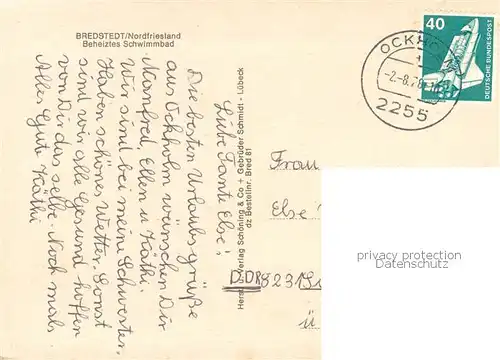 BREDSTEDT/Nordfriesland
Beheiztes Schwimmbad
Liebe Tante Else!
Die besten Urlaubsgrüße
aus Ockholm wünschen Dir
Manfred, Ellen u. Käthi.
Wir sind bei meine Schwester.
Haben schönes Wetter. Sonst
sind wir alle Gesund hoffen
von Dir das selbe. Noch mals
Alles Gute Käthi
Verlag Schöning & Co + Gebrüder Schmidt - Lübeck
dz Bestellnr. Bred 81
OCKH
-2.-8.
2255
40
DEUTSCHE BUNDESPOST
Frau
Else
DDR 8231
ü
privacy protection
Datenschutz